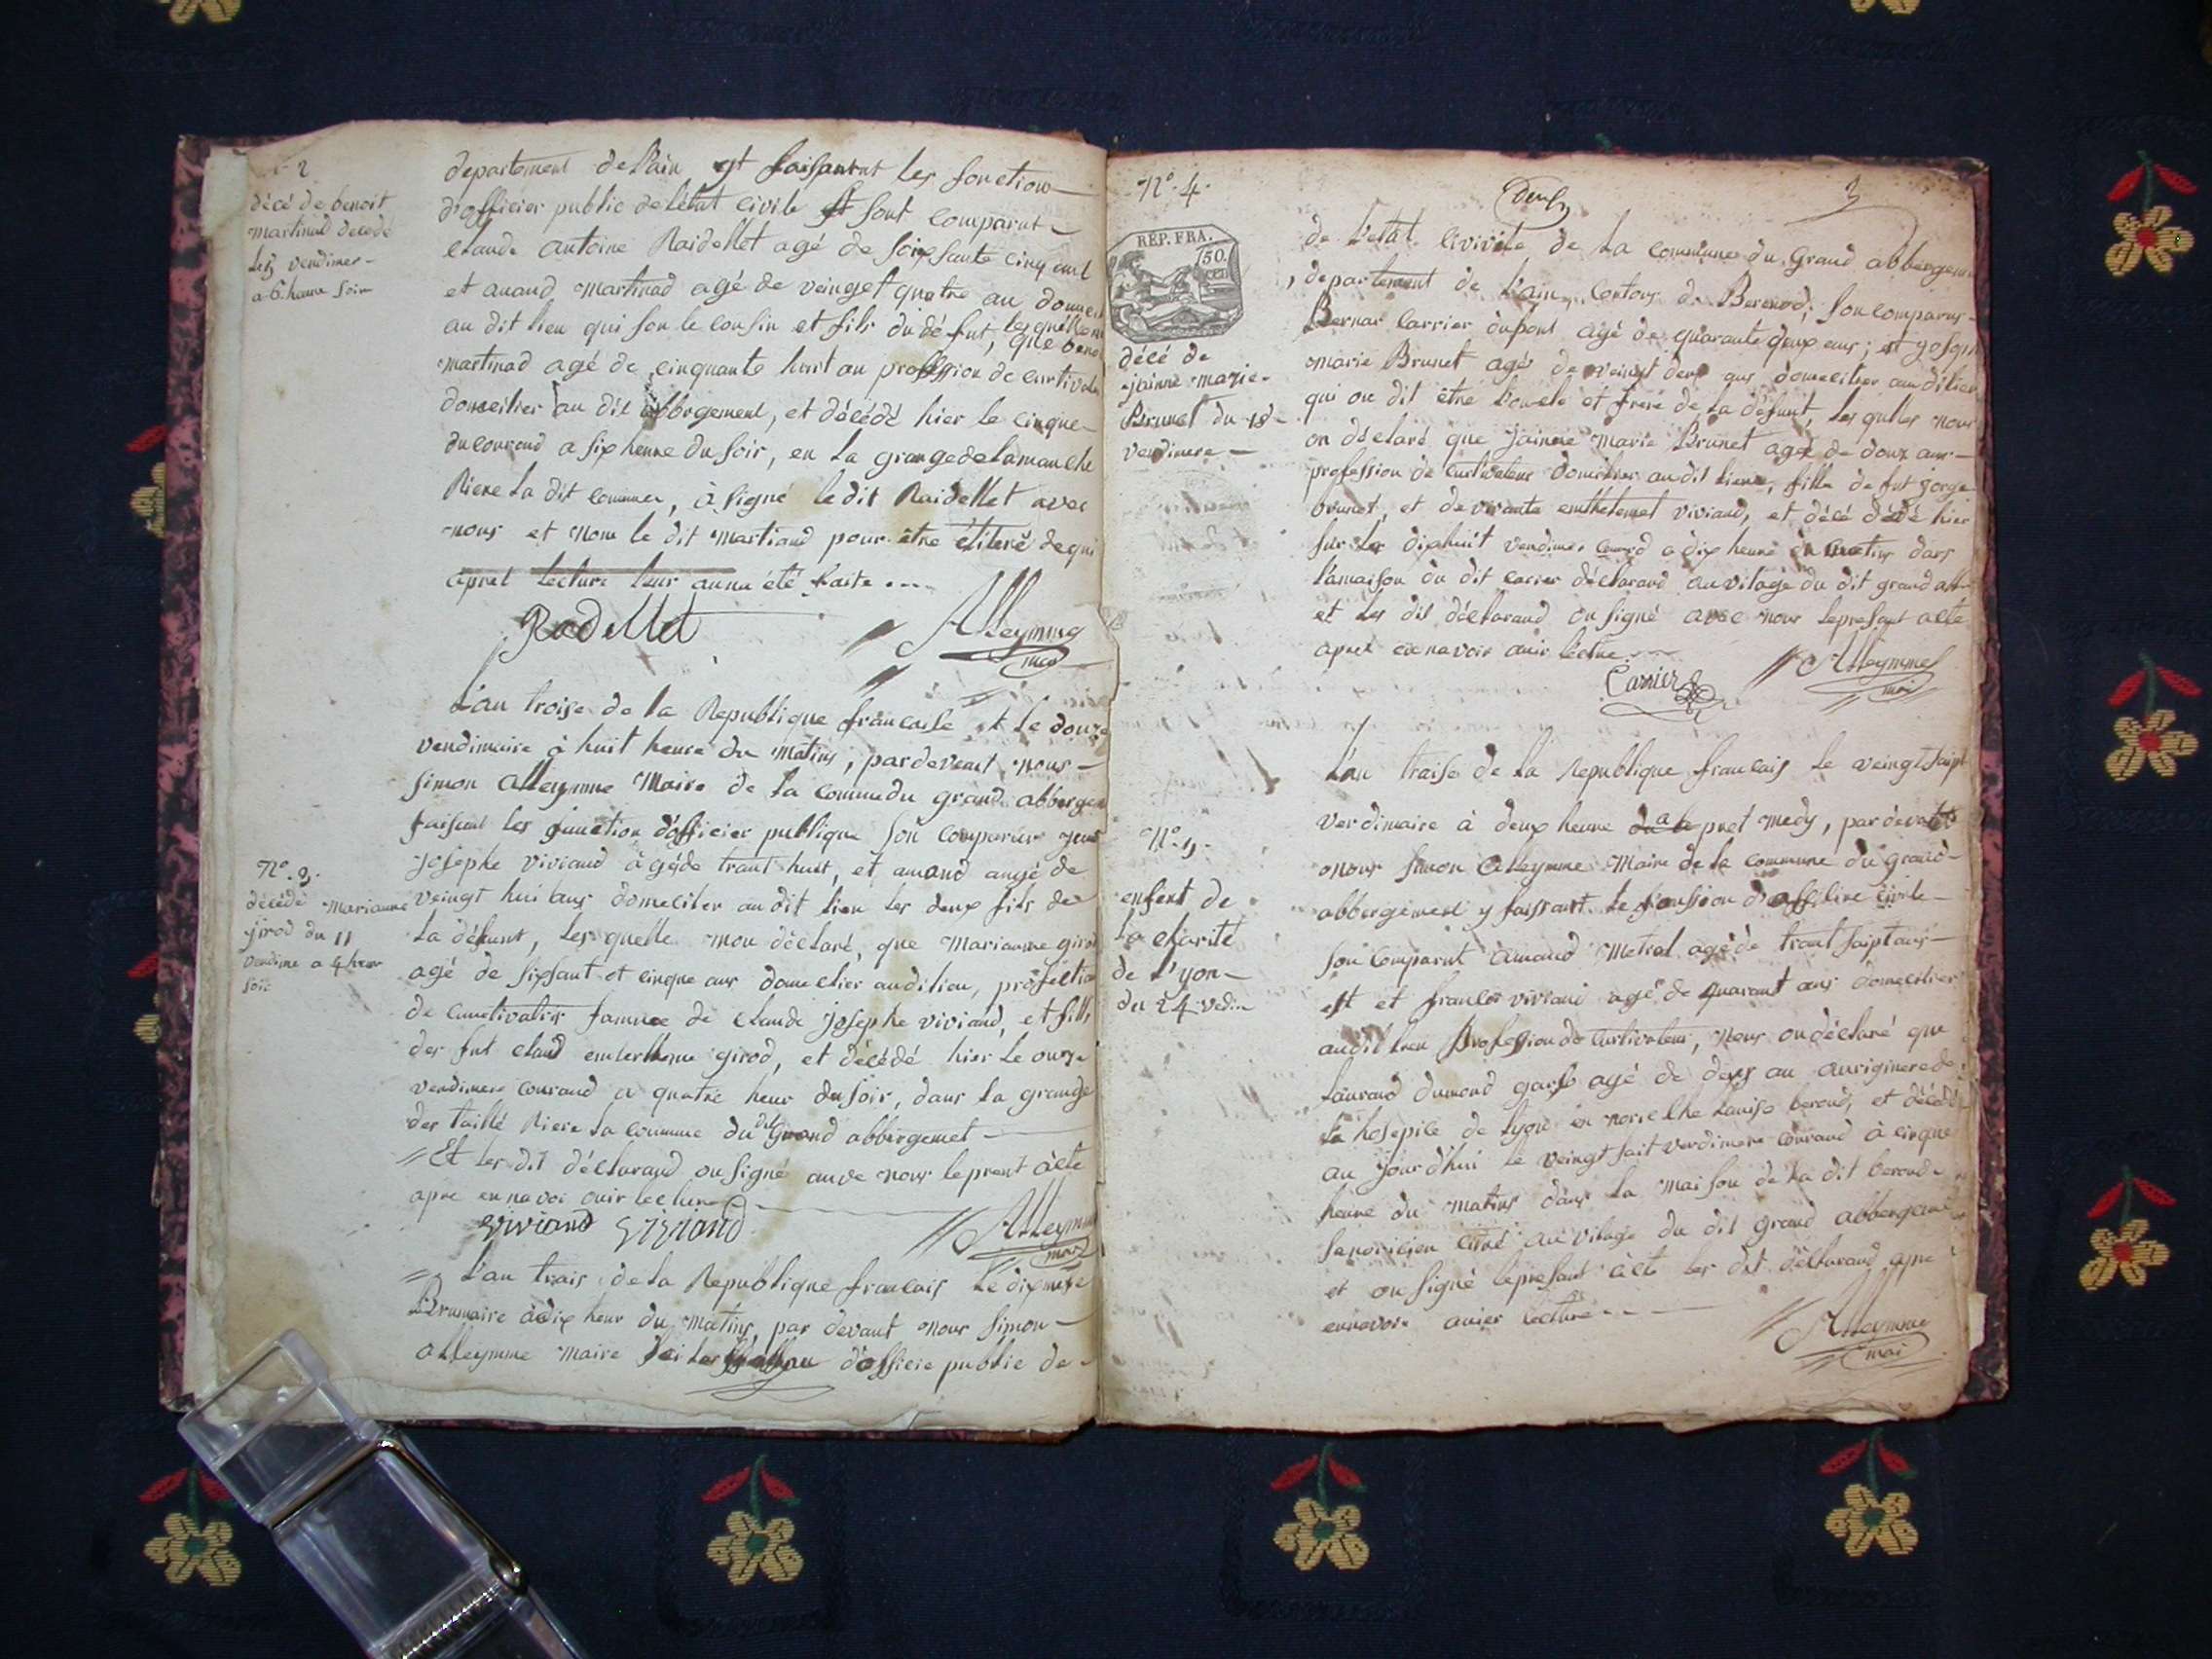 2
décé de benoit
martinad decedé
le 5 vendimer
a 6 heure soir
departement de l'ain et faisantnt les fonction
d'officier public de létat civile sont comparut
claude antoine Raidellet agé de soixsante cinq
et amand martinad agé de veinget quatre an
au dit lieu qui son le cousin et fils du défut, lesquelle
martinad agé de cinquante huit an profession de curtivateu
domeilier au dit abbergement, et décédé hier le cinque
du courand a six heure du soir, en la grange de lamanche
Riere la dit commer, à signé le dit Raidellet avec
nous et none le dit martiand pour être étiteré de qui
apret lecture leur anna été faite
Radellet Alleymme
mai
L'an troise de la Republique francaise le douze
vendimaire à huit heure du matins, par devent nous
simon alleymme Maire de la commedu grand abbergem
faisant les function d'officier publique son comparur
josephe viviand à géde trant huit, et amand angé de
veingt hui ans domeciler au dit lieu les deux fils de
la défunt, les quelle mon déclaré, que marianne girod
agé de sixsant et cinque ans domeclier audilieu, profection
de cunetivatiss famnee de claude josephe viviand, et fille
der fut claud enlerlheme girod, et décédé hier le onze
vendimere courand a quatre heur du soir, dans la grange
der taillé Riere la commune du dit Grand abbergemet
N° 3.
décédé marianne
jirod du 11
vendime a 4 heur
soir
Et les dit déclarand on signé anve nous leprent àcte
apre ennavoi ouir lecture
viviand viviand Alleymme
mai
L'an trais de la Republique francais le dixneuxe
Brumaire àdix heur du matins, par devant nour simon
alleymme maire d'officie public de
N°. 4.
deux
3
REP. FRA.
50.
CEN
décé de
jainne marie
Brunet du 18
vendimere
de L'etat civivile de la commune du Grand abbergem
departement de l'ain, contons de Berenod; son comparus
Bernar Carrier dupont agé de quarante deux ans; et
marie Brunet agés de veingt deux ans domecilier au dilieu
qui on dit être l'oncle et frere de la défunt, les qulles nous
on déclaré que jainne marie Brunet agé de douz ans
profession de curtivateur domicilier au dit lieue, fille de fut jorge
brunet, et de vivante enthelemet viviand, et décé dédé hier
sur les dixhuit vendime a dix heure du matins dans
l'amaison du dit carier déclarand au vilage du dit grand abb
et les dit déclarand on signé avec nous lepresant acte
apret en navoir ouir lectue
Carrier Alleymme
mai
N°. 5.
enfent de
La charité
de l'yon
du 24 vedi
L'an traise de la Republique francais le veingt saipt
verdimaire à deux heure a le pret medy, par devant
nous simon alleymme Maire de la commune du grand
abbergement y faissant le fonssion d'affiline civile
son comparut amand Metral agé de trant saipt ans
est et francois viviani agé de quarant ans domecilier
audit lieu Profession de curtivateur, nous on déclaré que
laurand dumond gars agé de deux an aurigineredé
la hosepile de lyon en noricelhe Louise berond, et décédé
au jour d'hui le veingt sait verdimere courand à cinque
heure du matins dans la maison de la dit berond
au vilage du dit grand abbergeme
et on signé lepresant àcte les dit déclarand apre
ennavoir ouier lecture
Alleymme
mai